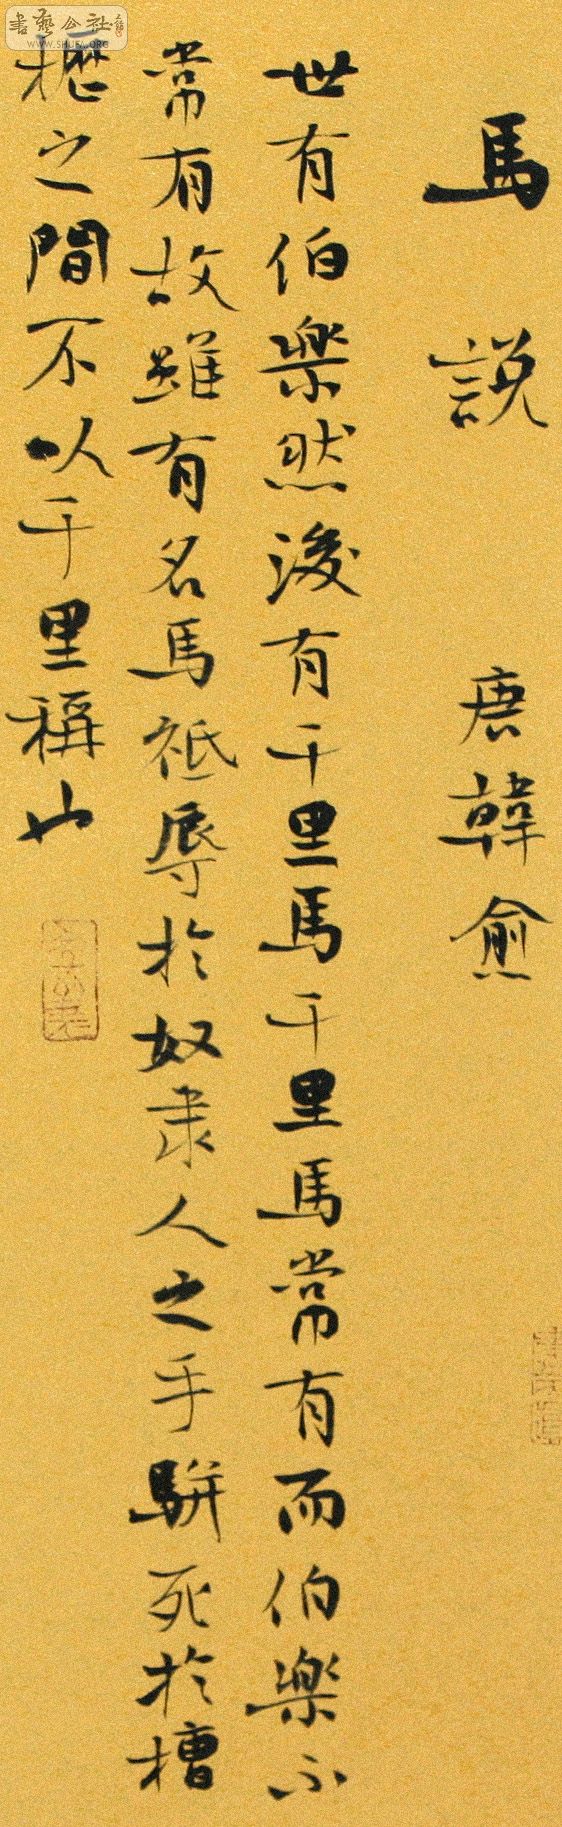 書藝公社
WWW.SHUFA.ORG
馬說 唐韓愈
世有伯樂然後有千里馬千里馬常有而伯樂不
常有故雖有名馬祗辱於奴隶人之手駢死於槽
櫪之間不以千里稱也